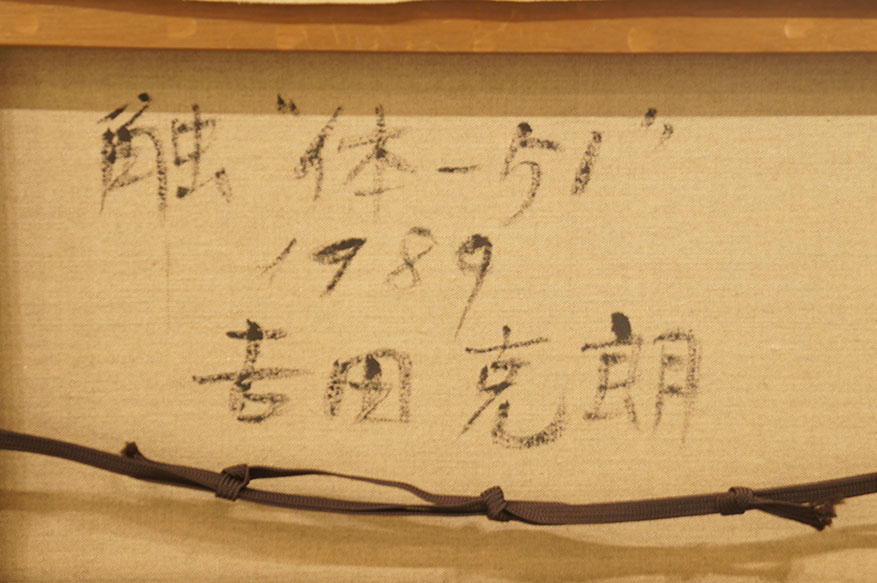 触 "体-51"
1989
吉田克朗